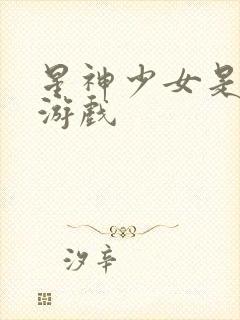 星神少女是
游戏
汐辛